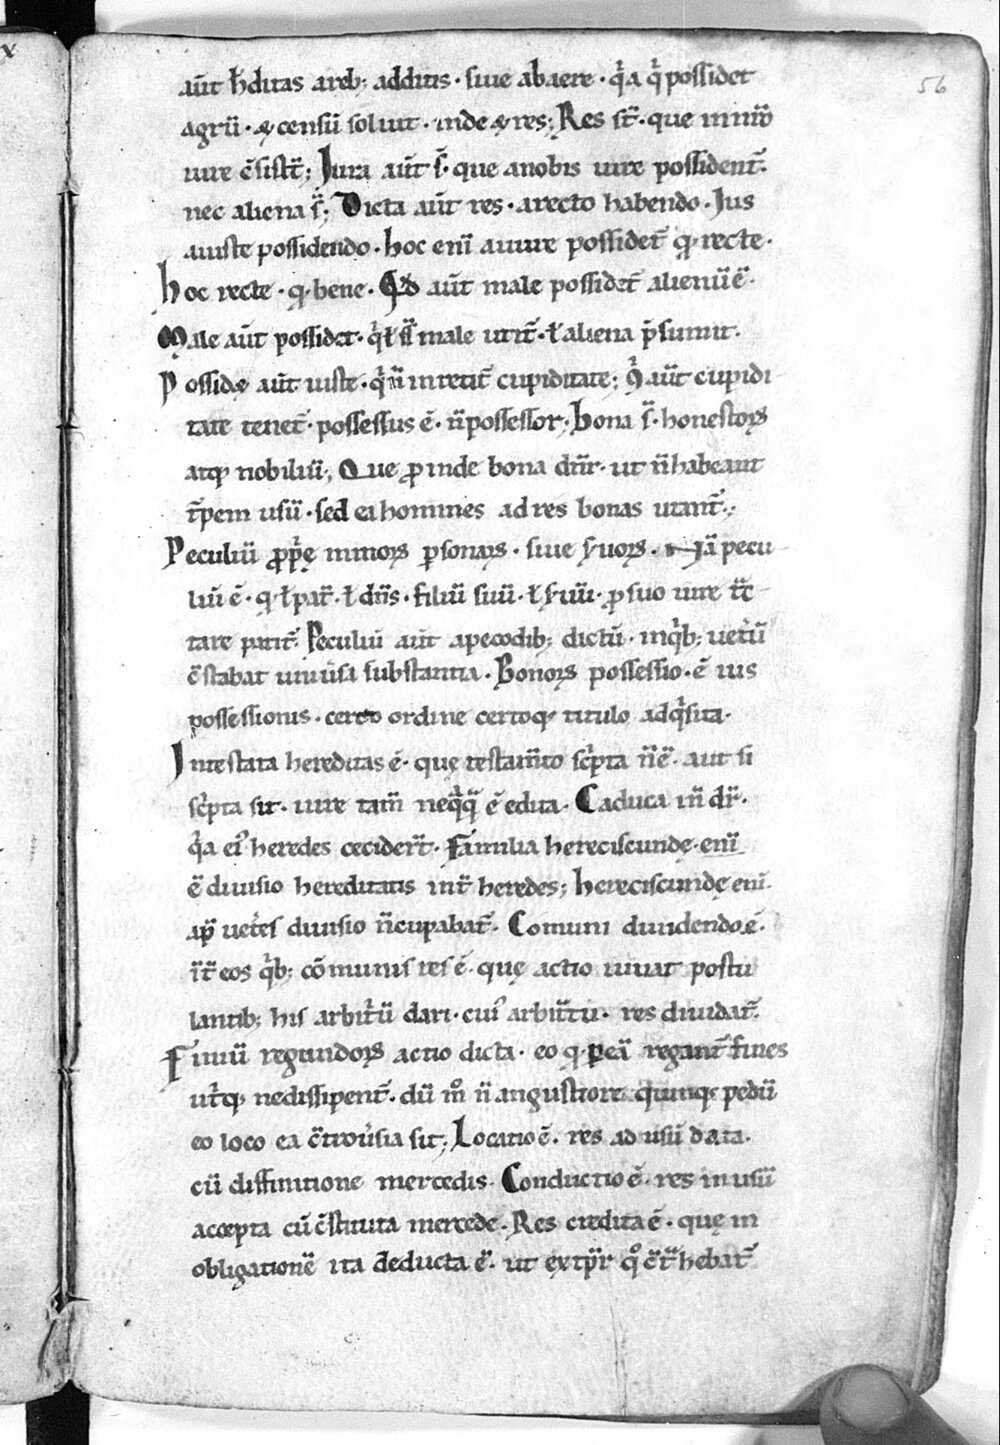 56
aūt h̄ditas a reb; aditis · siue ab aere · q̓a q̓ possidet
agrū · & censū soluit · inde & res; Res st̄ · que in n̄ro
iure c̄sistt̄; Jura aūt s̄ · que a nobis iure possident̄ ·
nec aliena s̄; Dicta aūt res · a recto habendo · Jus
a iuste possidendo · hoc eni a iure possidet̄ q̵ · recte ·
hoc recte · q̵ · bene · Qd aūt male possidet̄ alienū ē ·
Male aūt possidet · q̓ ł sū male utit̄ · ł aliena p̄sumit ·
Possid& aūt iuste · q̓ n̄ irretit̄ cupiditate; q̓ aūt cupidi
tate tenet̄ · possessus ē · n̄ possessor · bona s̄ · honestoꝝ
atq; nobiliū; Que ꝓinde bona dnr̄ · ut n̄ habeant
t̄pem usū · sed ea homines ad res bonas utant̄ ·;
Peculiū ꝓp̓ę minoꝝ ꝑsonaꝝ · siue s̓uoꝝ · Nā pecu
liū ē · q̵ ł pat̄ · ł dn̄s · filiū suū · ł s̓uū · ꝓ suo iure t̄c
tare patit̄ · Peculiū aūt a pecodib; dictū · in q̓b; uet̓ū
c̄stabat uniu̓sa substantia · Bonoꝝ possessio · ē ius
possessionis · certo ordine certoq; titulo adq̓sita ·
Intestata hereditas ē · quę testam̄to sc̓pta n̄ ē · aut si
sc̓pta sit · iure tam̄ neq̓q̄ ē edita · Caduca in̄ dr̄ ·
q̓a ei᾽ heredes cecider̄t · Familia hereciscundę · eni
ē diuisio hereditatis int̄ heredes; hereciscundę eni ·
ap̄ uet̓es diuisio n̄cupabat̄ · Comuni diuidendo ē ·
īt̄ eos q̓b; cōmunis res ē · quę actio iuuat postu
lantib; his arbit̓ū dari · cui᾽ arbit̄tu · res diuidat̄ ·
Finiū regundoꝝ actio dicta · eo q̵ · ꝑ eā regant̄ fines
ut̓q; ne dissipent̄ · dū m̊ n̄ angustiore quinq; pedū
eo loco ea c̄trou̓sia sit; Locatio ē · res ad usū data ·
cū diffinitione mercedis · Conductio ē · res in usū
accepta cū c̄stituta mercede · Res credita ē · quę in
obligationē ita deducta ē · ut ex tp̄r q̊ c̄t̄hebat̄